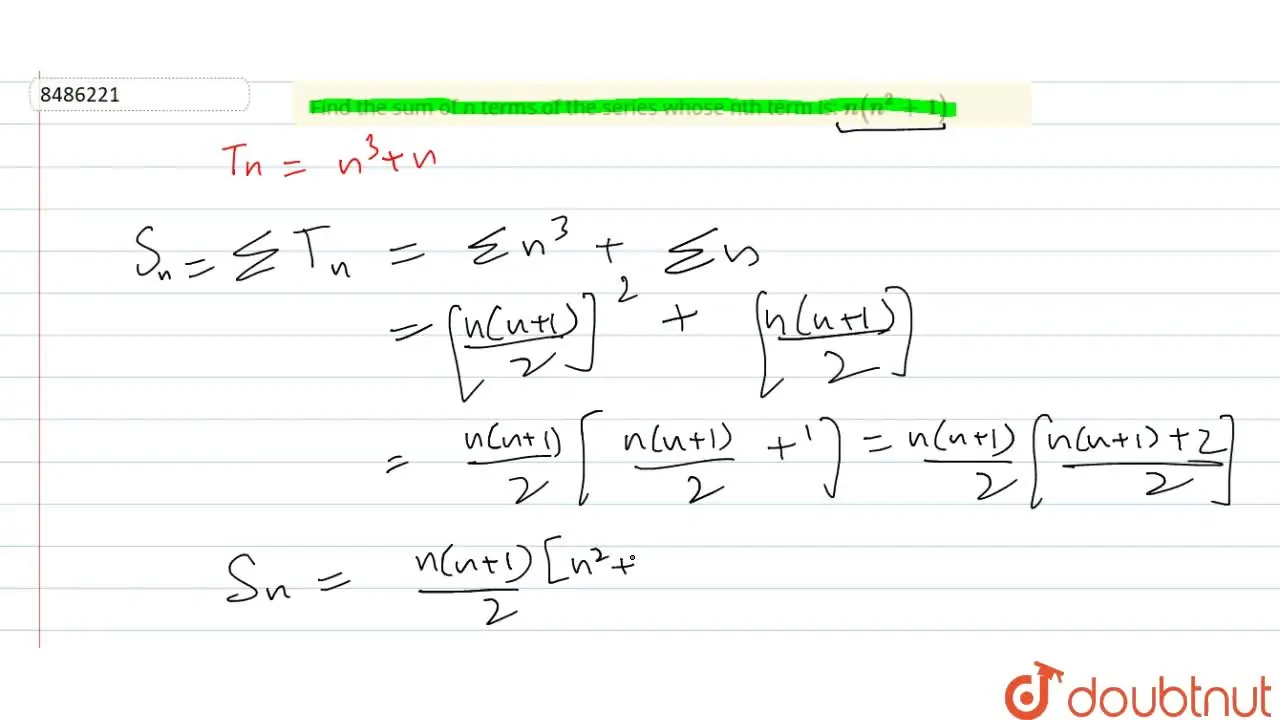 8486221
Find the sum of n terms of the series whose nth term is: n(n² + 1)
Tn = n³+n
Sₙ = ΣTₙ = Σn³ + Σn
= [n(n+1)/2]² + [n(n+1)/2]
= n(n+1)/2 [n(n+1)/2 +1] = n(n+1)/2 [n(n+1)+2/2]
Sn = n(n+1)/2 [n²+
doubtnut